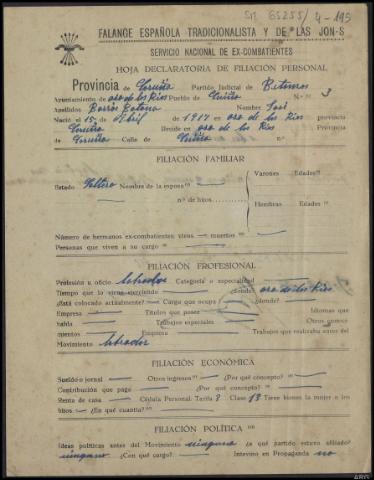 SM 65255/4-195
FALANGE ESPAÑOLA TRADICIONALISTA Y DE LAS JON-S
SERVICIO NACIONAL DE EX-COMBATIENTES
HOJA DECLARATORIA DE FILIACIÓN PERSONAL
Provincia de Coruña Partido Judicial de Betanzos
Ayuntamiento de oza de los Ríos Pueblo de N.º 3
Apellidos Barro Nombre José
Nació el 15 de Abril de 1917 en oza de los Ríos Provincia
Coruña Reside en oza de los Ríos Provincia
de Coruña Calle de n.º
FILIACIÓN FAMILIAR
Estado Soltero Nombre de la esposa — Varones Edades
n.º de hijos — Hembras Edades
Número de hermanos ex-combatientes vivos — muertos —
Personas que viven a su cargo —
FILIACIÓN PROFESIONAL
Profesión u oficio labrador Categoría o especialidad
Tiempo que lo viene ejerciendo ¿dónde? oza de los Ríos
¿Está colocado actualmente? — Cargo que ocupa — ¿dónde?
Empresa — Títulos que posee — Idiomas que
habla — Trabajos especiales — Otros conoci-
mientos — Empresa — Trabajos que realizaba antes del
Movimiento labrador
FILIACIÓN ECONÓMICA
Sueldo o jornal — Otros ingresos — ¿Por qué concepto? —
Contribución que paga — ¿Por qué concepto? —
Renta de casa — Cédula Personal: Tarifa 3 Clase 13 Tiene bienes la mujer o los
hijos — ¿En qué cuantía? —
FILIACIÓN POLÍTICA
Ideas políticas antes del Movimiento ninguna ¿a qué partido estuvo afiliado?
ninguno ¿Con qué cargo? — Intervino en Propaganda no